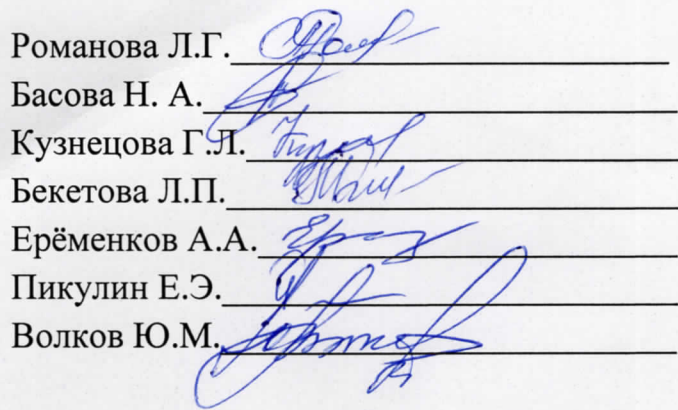 Романова Л.Г.
Басова Н. А.
Кузнецова Г.Л.
Бекетова Л.П.
Ерёменков А.А.
Пикулин Е.Э.
Волков Ю.М.